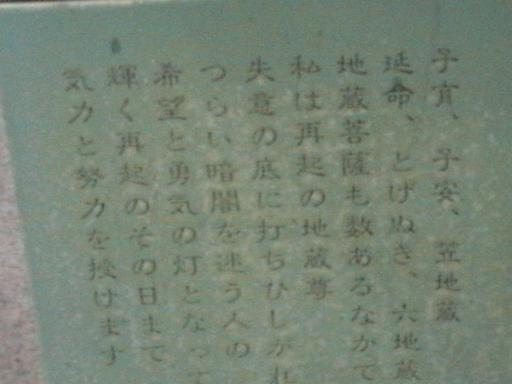 子育、子安、笠地蔵
延命、とげぬき、六地蔵
地蔵菩薩も数あるなかで
私は再起の地蔵尊
失意の底に打ちひしがれ
つらい暗闇を迷う人の
希望と勇気の灯となって
輝く再起のその日まで
気力と努力を授けます